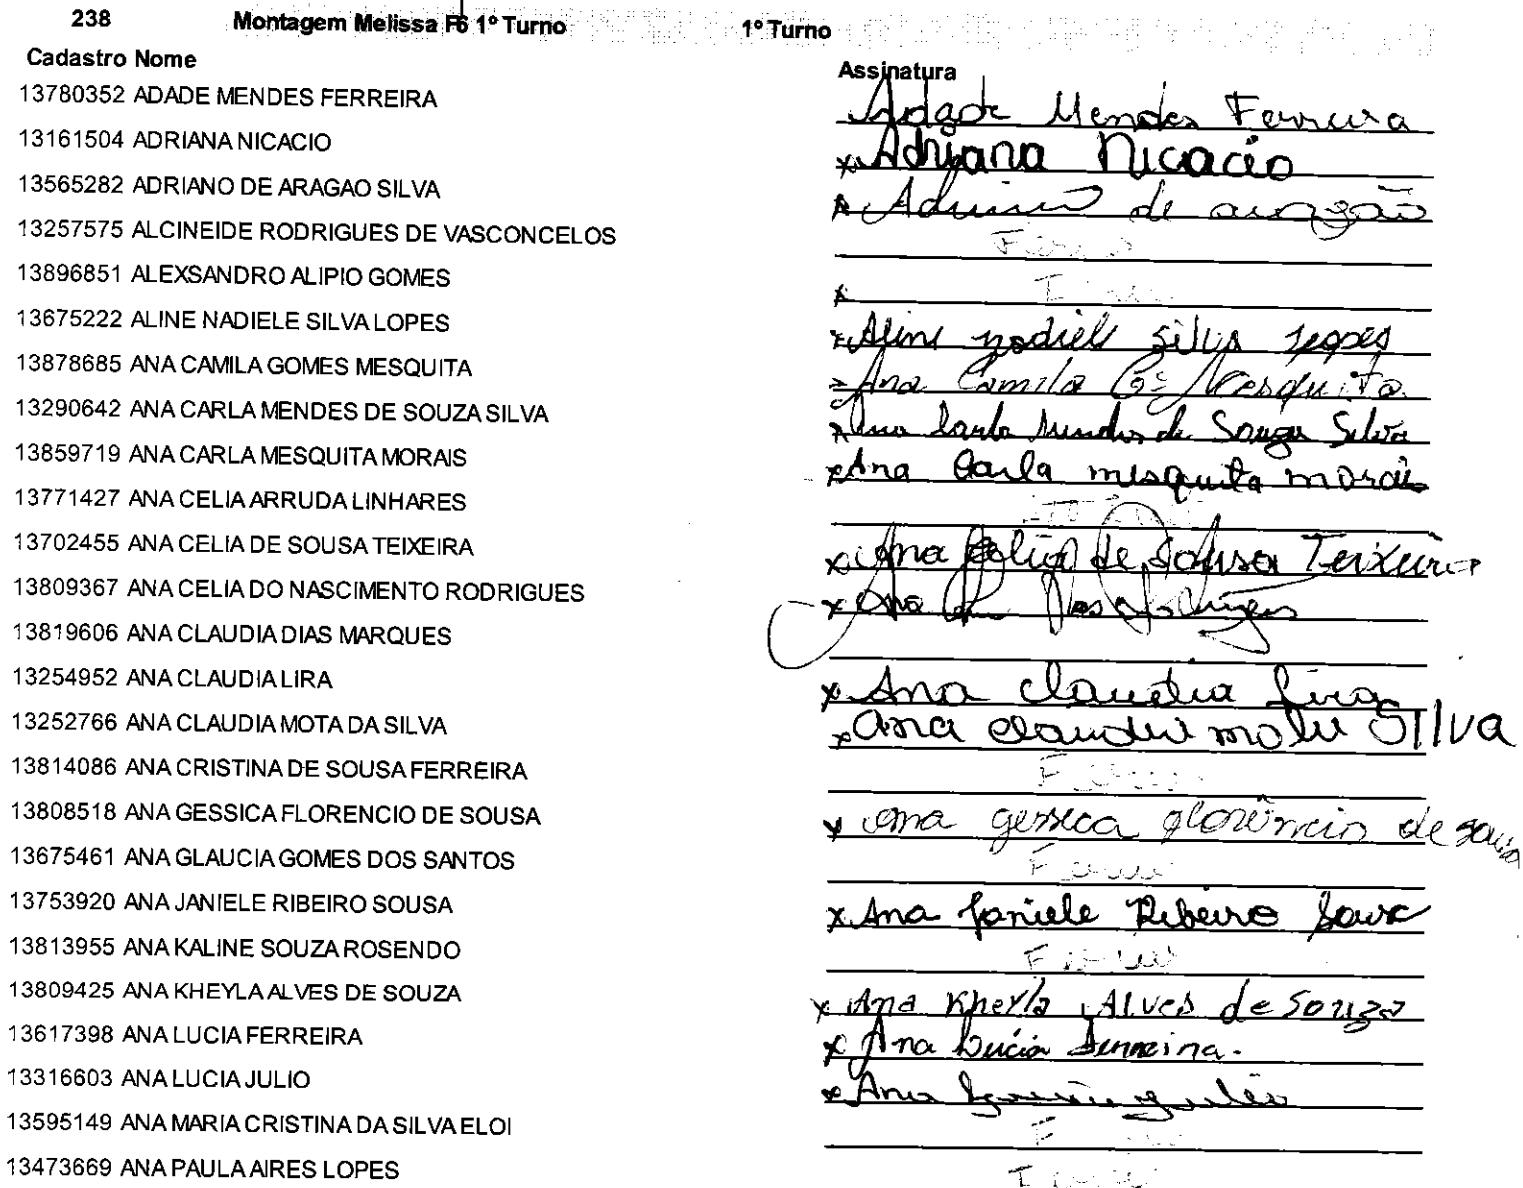 238 Montagem Melissa F6 1º Turno 1º Turno
Cadastro Nome Assinatura
13780352 ADADE MENDES FERREIRA Adade Mendes Ferreira
13161504 ADRIANA NICACIO x Adriana Nicacio
13565282 ADRIANO DE ARAGAO SILVA Adriano de aragão
13257575 ALCINEIDE RODRIGUES DE VASCONCELOS
13896851 ALEXSANDRO ALIPIO GOMES x
13675222 ALINE NADIELE SILVA LOPES x Aline nadiele silva lopes
13878685 ANA CAMILA GOMES MESQUITA Ana Camila Gs Mesquita
13290642 ANA CARLA MENDES DE SOUZA SILVA x Ana Carla Mendes de Souza Silva
13859719 ANA CARLA MESQUITA MORAIS x Ana Carla mesquita morais
13771427 ANA CELIA ARRUDA LINHARES
13702455 ANA CELIA DE SOUSA TEIXEIRA x Ana Celia de Sousa Teixeira
13809367 ANA CELIA DO NASCIMENTO RODRIGUES x Ana
13819606 ANA CLAUDIA DIAS MARQUES
13254952 ANA CLAUDIA LIRA x Ana Claudia Lira
13252766 ANA CLAUDIA MOTA DA SILVA x Ana Claudia mota SIlva
13814086 ANA CRISTINA DE SOUSA FERREIRA
13808518 ANA GESSICA FLORENCIO DE SOUSA x ana gessica florêncio de sousa
13675461 ANA GLAUCIA GOMES DOS SANTOS
13753920 ANA JANIELE RIBEIRO SOUSA x Ana Janiele Ribeiro Sousa
13813955 ANA KALINE SOUZA ROSENDO
13809425 ANA KHEYLA ALVES DE SOUZA x Ana Kheyla Alves de Souza
13617398 ANA LUCIA FERREIRA x Ana Lúcia Ferreira.
13316603 ANA LUCIA JULIO x Ana Lucia julio
13595149 ANA MARIA CRISTINA DA SILVA ELOI
13473669 ANA PAULA AIRES LOPES